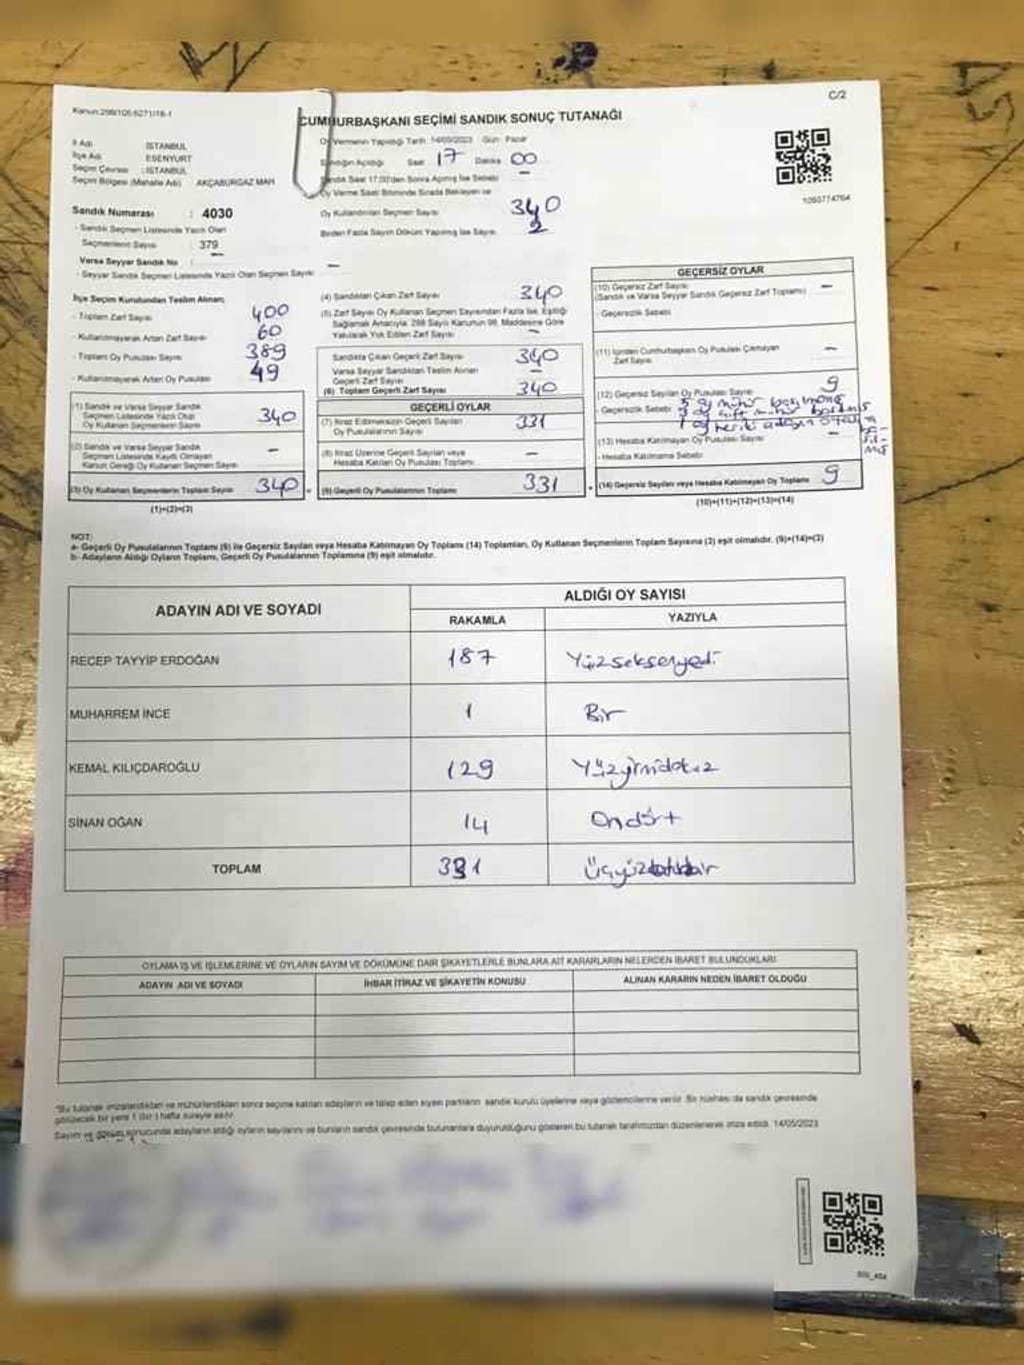 Kanun:298/105 6271/16-1
C/2
CUMHURBAŞKANI SEÇİMİ SANDIK SONUÇ TUTANAĞI
İl Adı : İSTANBUL
İlçe Adı : ESENYURT
Seçim Çevresi : İSTANBUL
Seçim Bölgesi (Mahalle Adı) : AKÇABURGAZ MAH
Sandık Numarası : 4030
- Sandık Seçmen Listesinde Yazılı Olan
Seçmenlerin Sayısı : 379
Varsa Seyyar Sandık No : —
- Seyyar Sandık Seçmen Listesinde Yazılı Olan Seçmen Sayısı : —
Oy Vermenin Yapıldığı Tarih :14/05/2023 Gün : Pazar
Sandığın Açıldığı Saat 17 Dakika 00
Sandık Saat 17:00'den Sonra Açılmış İse Sebebi —
Oy Verme Saati Bitiminde Sırada Bekleyen ve
Oy Kullandırılan Seçmen Sayısı 340
Birden Fazla Sayım Döküm Yapılmış İse Sayısı 2
1060774764
İlçe Seçim Kurulundan Teslim Alınan;
- Toplam Zarf Sayısı 400
- Kullanılmayarak Artan Zarf Sayısı 60
- Toplam Oy Pusulası Sayısı 389
- Kullanılmayarak Artan Oy Pusulası 49
(1) Sandık ve Varsa Seyyar Sandık
Seçmen Listesinde Yazılı Olup
Oy Kullanan Seçmenlerin Sayısı 340
(2) Sandık ve Varsa Seyyar Sandık
Seçmen Listesinde Kayıtlı Olmayan
Kanun Gereği Oy Kullanan Seçmen Sayısı —
(3) Oy Kullanan Seçmenlerin Toplam Sayısı 340
(1)+(2)=(3)
(4) Sandıktan Çıkan Zarf Sayısı 340
(5) Zarf Sayısı Oy Kullanan Seçmen Sayısından Fazla İse, Eşitliği
Sağlamak Amacıyla, 298 Sayılı Kanunun 98. Maddesine Göre
Yakılarak Yok Edilen Zarf Sayısı —
Sandıkta Çıkan Geçerli Zarf Sayısı 340
Varsa Seyyar Sandıktan Teslim Alınan
Geçerli Zarf Sayısı —
(6) Toplam Geçerli Zarf Sayısı 340
GEÇERLİ OYLAR
(7) İtiraz Edilmeksizin Geçerli Sayılan
Oy Pusulalarının Sayısı 331
(8) İtiraz Üzerine Geçerli Sayılan veya
Hesaba Katılan Oy Pusulası Toplamı —
= (9) Geçerli Oy Pusulalarının Toplamı 331
GEÇERSİZ OYLAR
(10) Geçersiz Zarf Sayısı —
(Sandık ve Varsa Seyyar Sandık Geçersiz Zarf Toplamı)
- Geçersizlik Sebebi
(11) İçinden Cumhurbaşkanı Oy Pusulası Çıkmayan
Zarf Sayısı —
(12) Geçersiz Sayılan Oy Pusulası Sayısı 9
- Geçersizlik Sebebi 5 oy mühür basılmamış
3 oy çift mühür basılmış
1 oy
(13) Hesaba Katılmayan Oy Pusulası Sayısı —
- Hesaba Katılmama Sebebi
+ (14) Geçersiz Sayılan veya Hesaba Katılmayan Oy Toplamı 9
(10)+(11)+(12)+(13)=(14)
NOT:
a- Geçerli Oy Pusulalarının Toplamı (9) ile Geçersiz Sayılan veya Hesaba Katılmayan Oy Toplamı (14) Toplamları, Oy Kullanan Seçmenlerin Toplam Sayısına (3) eşit olmalıdır. (9)+(14)=(3)
b- Adayların Aldığı Oyların Toplamı, Geçerli Oy Pusulalarının Toplamına (9) eşit olmalıdır.
ADAYIN ADI VE SOYADI
ALDIĞI OY SAYISI
RAKAMLA YAZIYLA
RECEP TAYYİP ERDOĞAN 187 Yüzseksenyedi
MUHARREM İNCE 1 Bir
KEMAL KILIÇDAROĞLU 129 Yüzyirmidokuz
SİNAN OĞAN 14 Ondört
TOPLAM 331
OYLAMA İŞ VE İŞLEMLERİNE VE OYLARIN SAYIM VE DÖKÜMÜNE DAİR ŞİKAYETLERLE BUNLARA AİT KARARLARIN NELERDEN İBARET BULUNDUKLARI
ADAYIN ADI VE SOYADI İHBAR İTİRAZ VE ŞİKAYETİN KONUSU ALINAN KARARIN NEDEN İBARET OLDUĞU
*Bu tutanak imzalandıktan ve mühürlendikten sonra seçime katılan adayların ve talep eden siyasi partilerin sandık kurulu üyelerine veya gözlemcilerine verilir. Bir nüshası da sandık çevresinde
görülecek bir yere 1 (bir) hafta süreyle asılır.
Sayım ve döküm sonucunda adayların aldığı oyların sayılarını ve bunların sandık çevresinde bulunanlara duyurulduğunu gösteren bu tutanak tarafımızdan düzenlenerek imza edildi. 14/05/2023